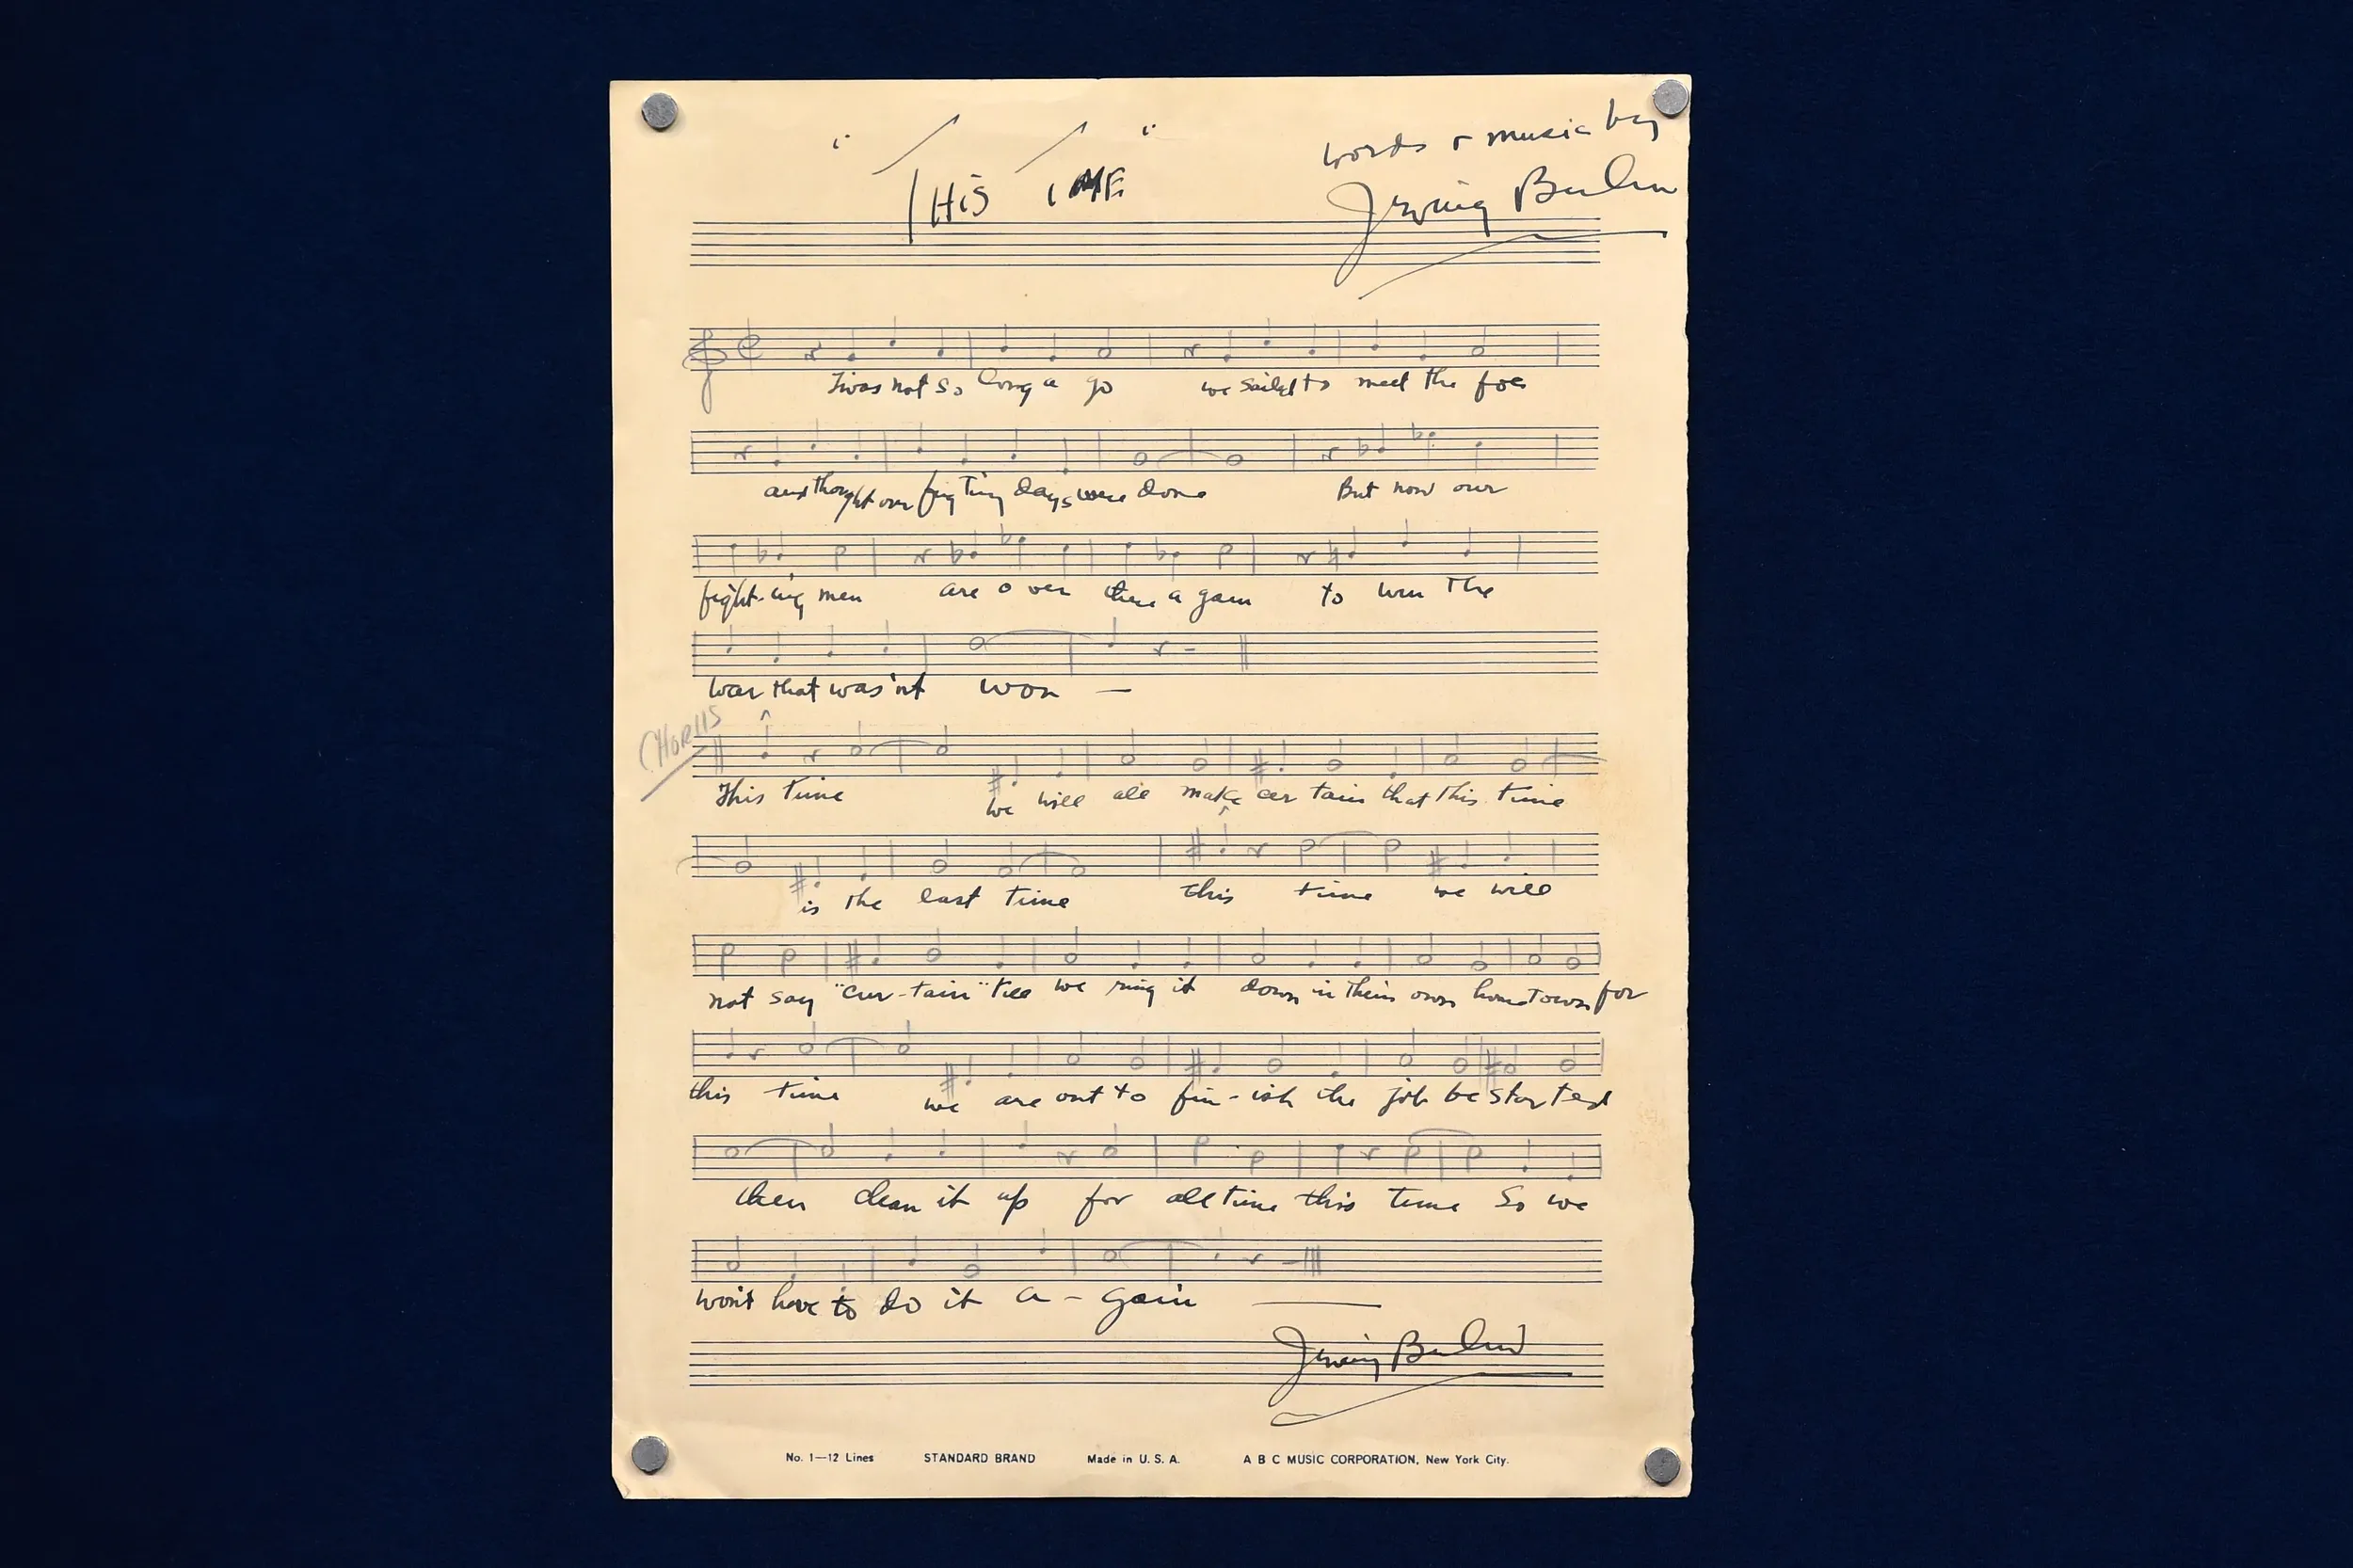 "THIS TIME"
words & music by
Irving Berlin
Twas not so long a go we sailed to meet the foe
and thought our figting days were done But now our
fight-ing men are o ver there a gain to win the
war that was'nt won —
CHORUS
This time we will all make cer tain that this time
is the last time this time we will
not say "cur-tain" till we ring it down in their own home town for
this time we are out to fin-ish the job we started
then clean it up for all time this time So we
wont have to do it a-gain —
Irving Berlin
No. 1—12 Lines STANDARD BRAND Made in U. S. A. A B C MUSIC CORPORATION, New York City.